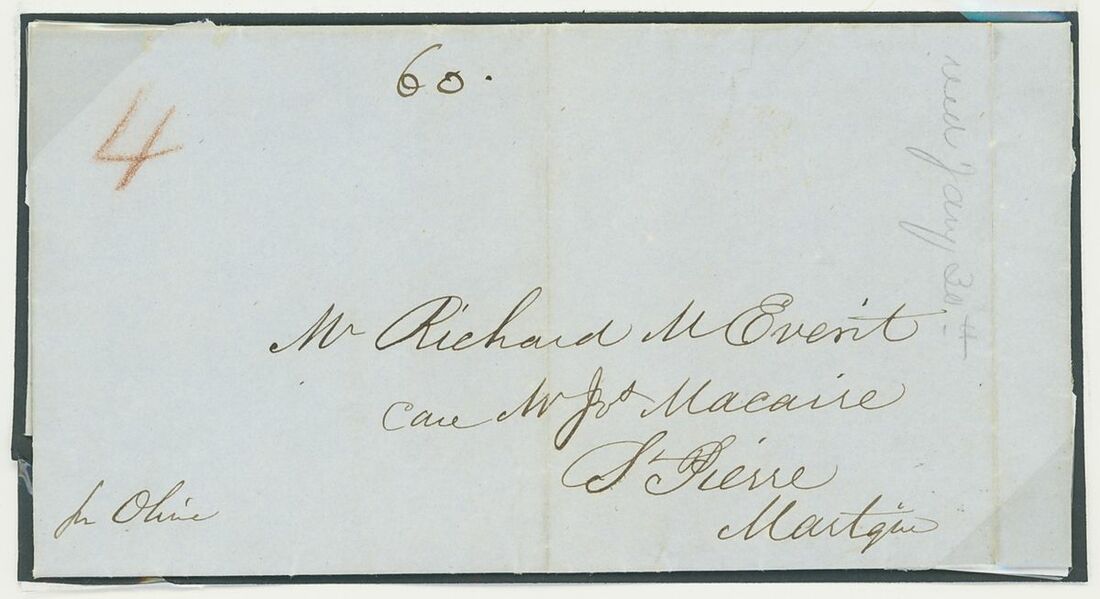 60.
4
Mr Richard M Everit
Care Mr Jos Macaire
St Pierre
Martque
pr Olive
recd Jany 30th